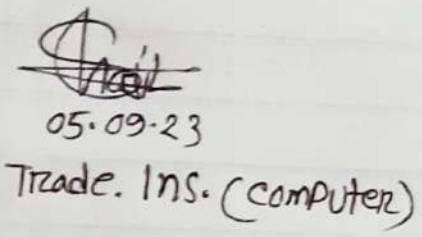 05.09.23
Trade. Ins. (Computer)